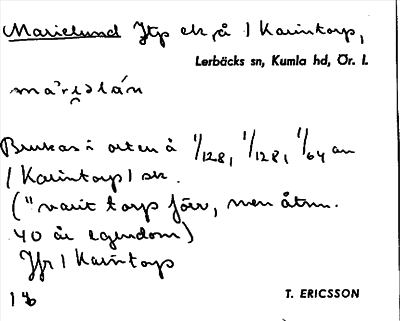 Marielund Jtp ek. å 1 Karintorp,
Lerbäcks sn, Kumla hd, Ör. l.
Brukas i orten å 1/128, 1/128, 1/64 av
1 Karintorp 1 sk.
(" varit torp förr, men åtm.
40 år egendom)
Jfr 1 Karintorp
16
T. ERICSSON